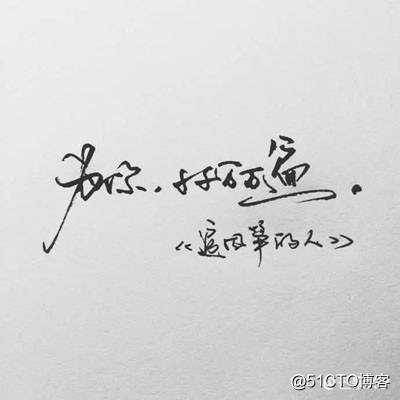 为你，千千万万遍。
《追风筝的人》
@51CTO博客